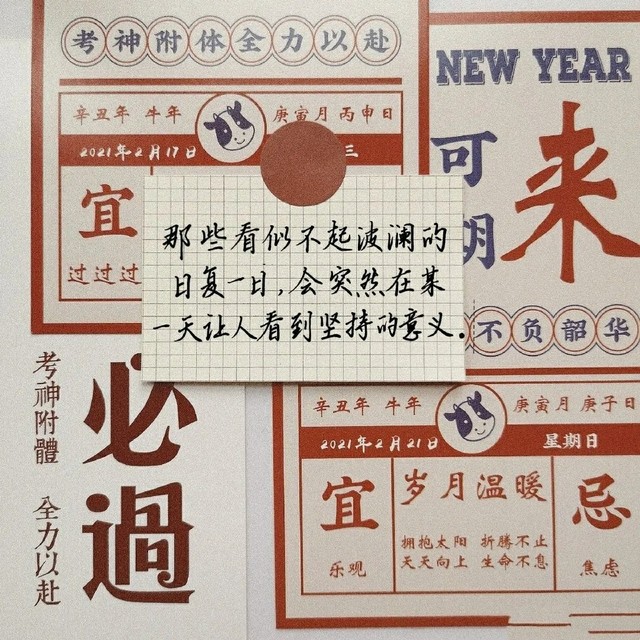 考神附体全力以赴
辛丑年 牛年
庚寅月 丙申日
2021年2月17日
三
宜
过过过
NEW YEAR
可期
未来
不负韶华
那些看似不起波澜的
日复一日,会突然在某
一天让人看到坚持的意义.
考神附體 全力以赴
必過
辛丑年 牛年
庚寅月 庚子日
2021年2月21日
星期日
宜
乐观
岁月温暖
拥抱太阳 折腾不止
天天向上 生命不息
忌
焦虑